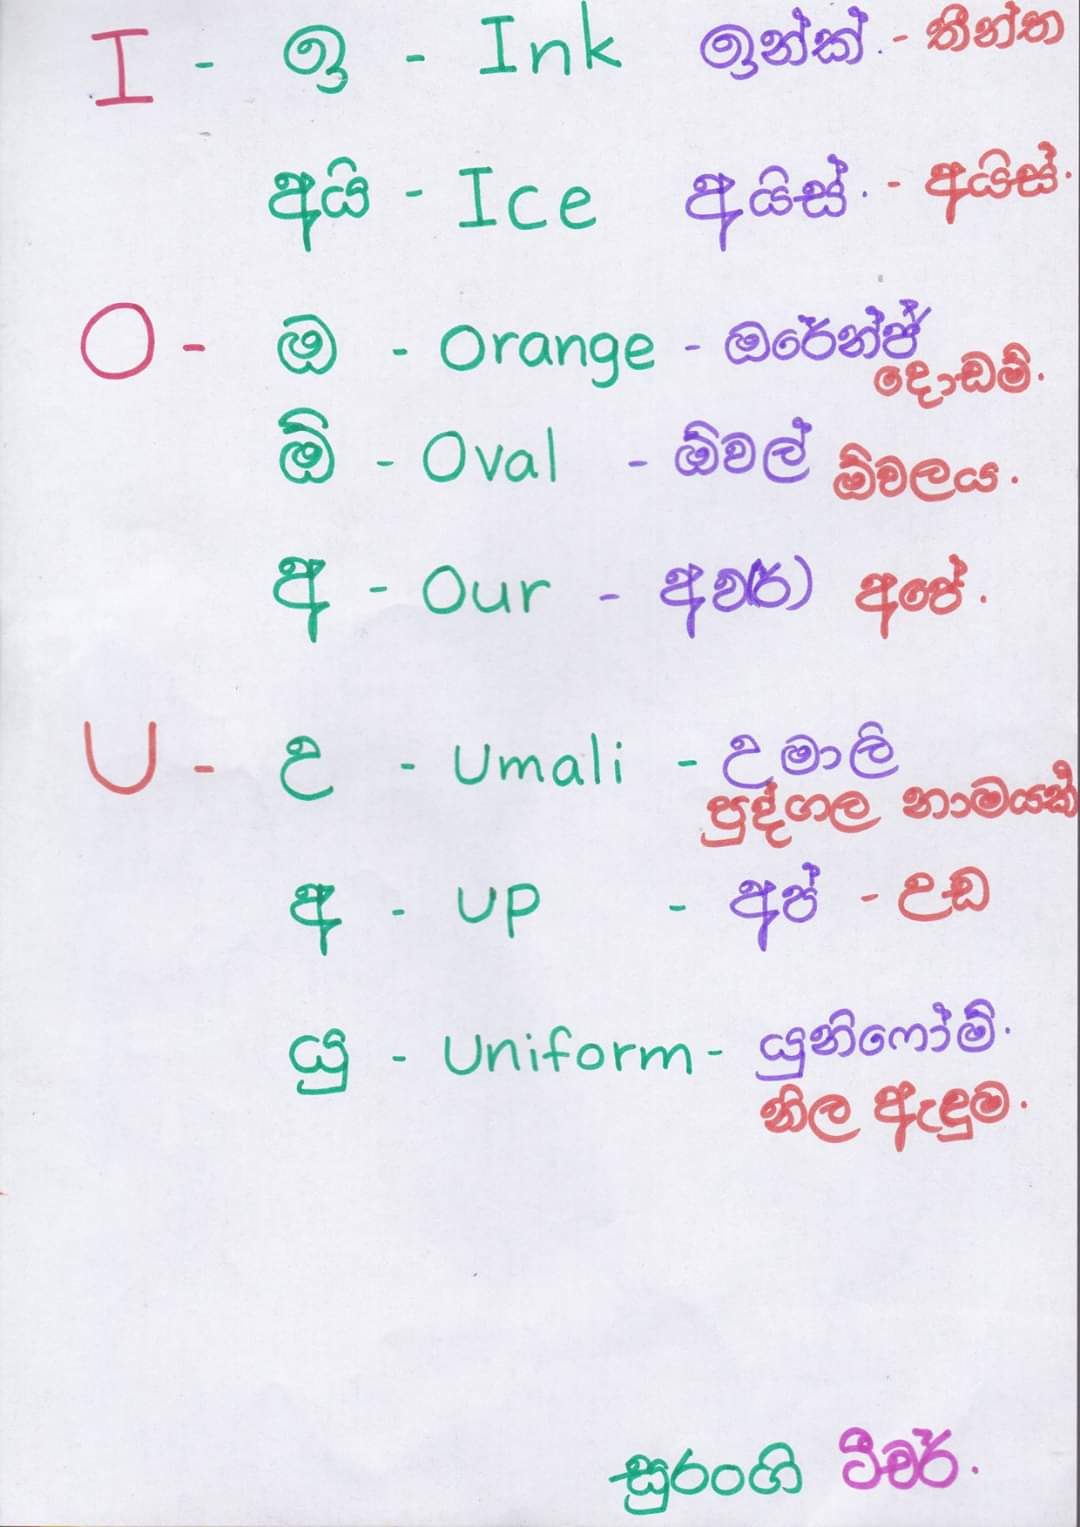 I - ඉ - Ink ඉන්ක් - තීන්ත
අයි - Ice අයිස්. - අයිස්.
O - ඔ - Orange - ඔරේන්ජ්
දොඩම්.
ඕ - Oval - ඕවල් ඕවලය.
අ - Our - අව(ර්) අපේ.
U - උ - Umali - උමාලි
පුද්ගල නාමයක්
අ - UP - අප් - උඩ
යු - Uniform - යුනිෆෝම්.
නිල ඇඳුම.
සුරංගි ටීචර්.